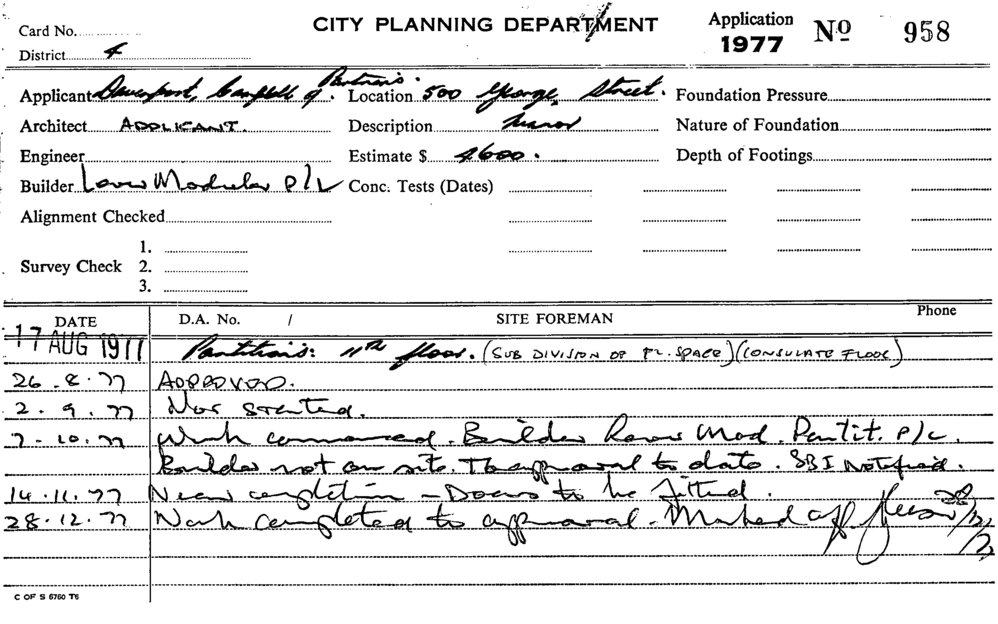 Card No.
CITY PLANNING DEPARTMENT
Application 1977 No 958
District 4
Applicant Davenport, Campbell & Partners. Location 500 George Street. Foundation Pressure
Architect APPLICANT. Description Minor Nature of Foundation
Engineer Estimate $ 4600. Depth of Footings
Builder Modular P/L Conc. Tests (Dates)
Alignment Checked
1.
Survey Check 2.
3.
DATE D.A. No. / SITE FOREMAN Phone
17 AUG 1977 Partitions: 11th floor. (SUB DIVISION OF FL. SPACE) (CONSULATE FLOOR)
26.8.77 APPROVED.
2.9.77 Not started.
7.10.77 Work commenced. Builder Mod. Partit. P/L.
Builder not on site. To approval to date. SBI Notified.
14.11.77 Near completion - Doors to be fitted.
28.12.77 Work completed to approval. Marked off 28/12/
C OF S 6760 T6